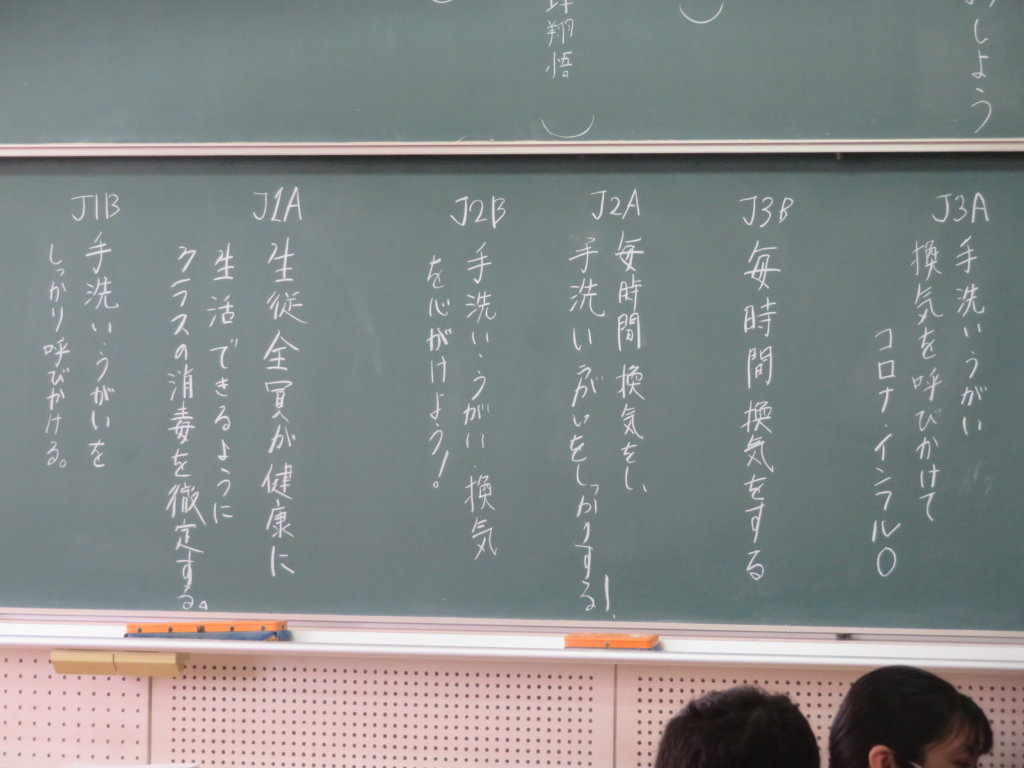 しよう
翔悟
J3A
手洗いうがい
換気を呼びかけて
コロナ・インフル0
J3B
毎時間換気をする
J2A
毎時間換気をし、
手洗いうがいをしっかりする!
J2B
手洗い・うがい・換気
を心がけよう!。
J1A
生徒全員が健康に
生活できるように
クラスの消毒を徹定する。
J1B
手洗い・うがいを
しっかり呼びかける。